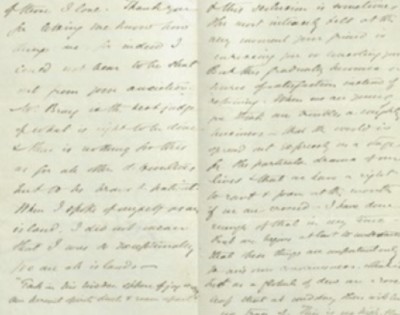 of those I love. Thank you
for letting me know how
things are for indeed I
could not bear to be shut
out from your anxieties.
Mr Bray is the best judge
of what is right to be done
& there is nothing for this
as for all other troubles
but to be brave & patient.
When I spoke of myself as an
island, I did not mean
that I was so exceptionally.
We are all islands—
"Each in his hidden sphere of joy or woe
Our hermit spirits dwell & roam apart"
& this seclusion is sometimes
the most intensely felt at the
very moment your friend is
caressing you or consoling you.
But this gradually becomes a
source of satisfaction instead of
repining. When we are young
we think our troubles a mighty
business — that the world is
spread out expressly as a stage
for the particular drama of our
lives & that we have a right
to rant & foam at the mouth
if we are crossed. I have done
enough of that in my time.
But we begin at last to understand
that these things are important only
to our own consciousness, which is
but as a globule of dew on a rose-
leaf that at midday there will be
no trace of. This is no